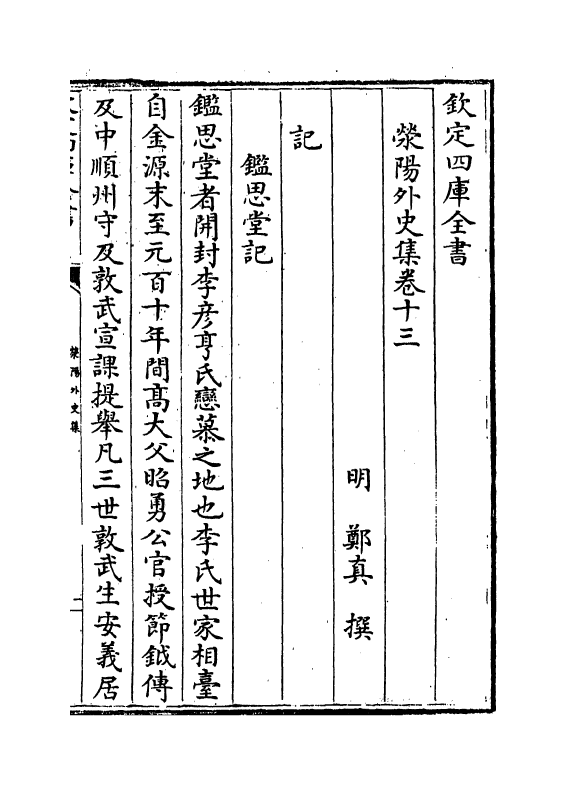 欽定四庫全書
滎陽外史集卷十三
明　鄭真　撰
記
鑑思堂記
鑑思堂者開封李彥亨氏戀慕之地也李氏世家相臺
自金源末至元百十年間髙大父昭勇公官授節鉞傳
及中順州守及敦武宣課提舉凡三世敦武生安義居
滎陽外史集